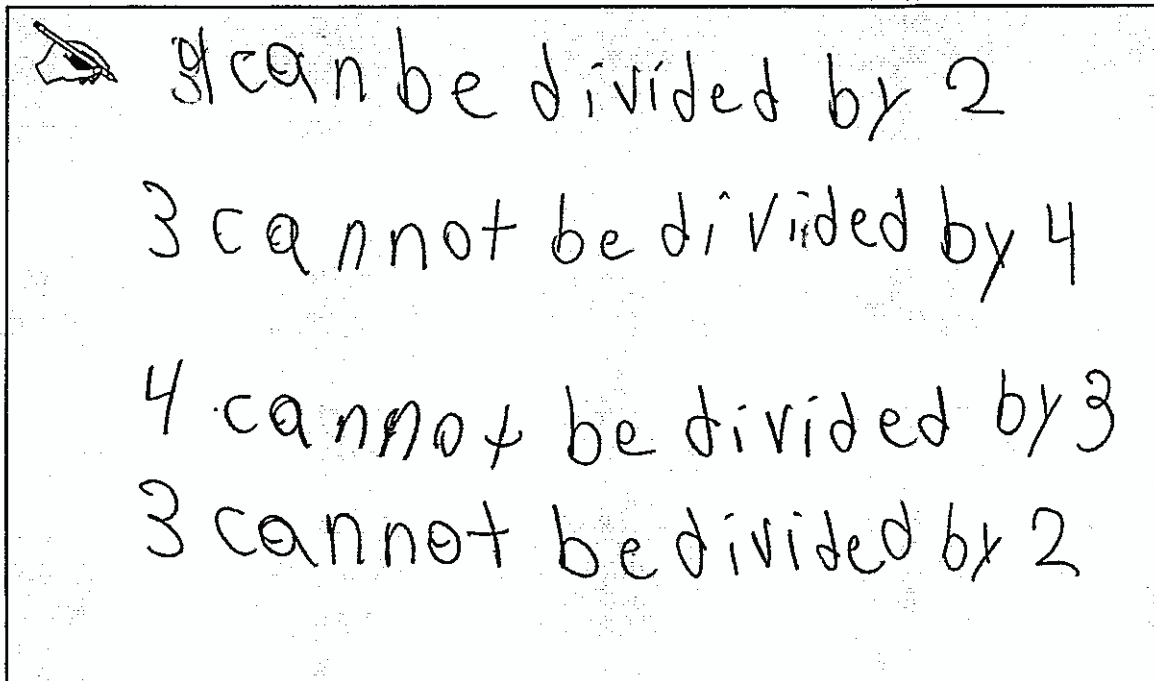 can be divided by 2
3 cannot be divided by 4
4 cannot be divided by 3
3 cannot be divided by 2